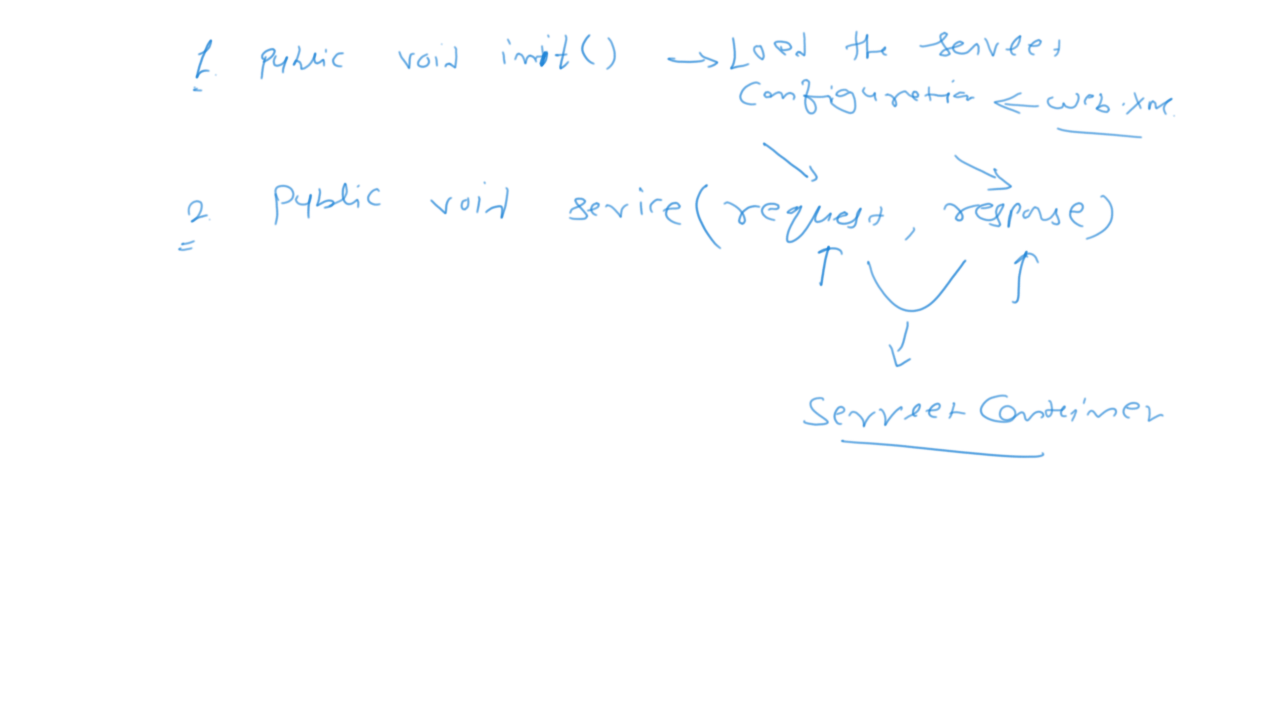 1. public void init() → Load the servlet
Configuration ← web.xml
2. public void service(request, response)
Servlet Container